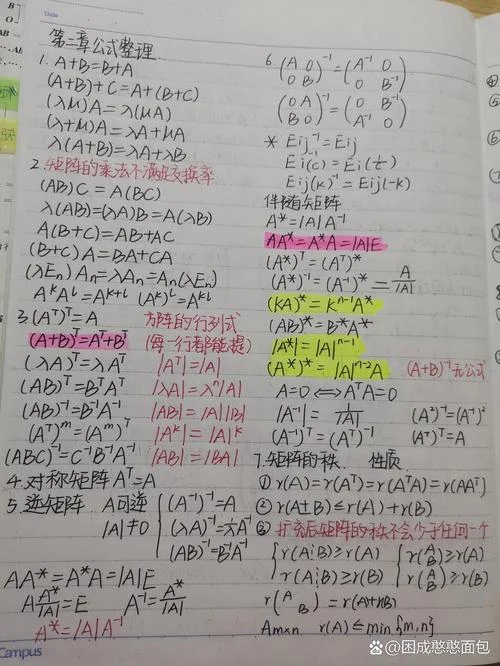 Date
第二章公式整理
1. A+B=B+A
(A+B)+C=A+(B+C)
(λμ)A=λ(μA)
(λ+μ)A=λA+μA
λ(A+B)=λA+λB
2.矩阵的乘法不满足交换率
(AB)C=A(BC)
λ(AB)=(λA)B=A(λB)
A(B+C)=AB+AC
(B+C)A=BA+CA
(λEn)An=λAn=An(λEn)
A^k A^l=A^{k+l} (A^k)^l=A^{kl}
3.(A^T)^T=A
(A+B)^T=A^T+B^T
(λA)^T=λA^T
(AB)^T=B^T A^T
(AB)^{-1}=B^{-1}A^{-1}
(A^T)^m=(A^m)^T
(ABC)^{-1}=C^{-1}B^{-1}A^{-1}
方阵的行列式
(每一行都能提)
|A^T|=|A|
|λA|=λ^n|A|
|AB|=|A||B|
|A^k|=|A|^k
|AB|=|BA|
4.对称矩阵 A^T=A
5.逆矩阵 A可逆
|A|≠0
(A^{-1})^{-1}=A
(λA)^{-1}=1/λ A^{-1}
(AB)^{-1}=B^{-1}A^{-1}
AA*=A*A=|A|E
A A*/|A|=E A^{-1}=A*/|A|
A*=|A|A^{-1}
6. (A 0; 0 B)^{-1}=(A^{-1} 0; 0 B^{-1})
(0 A; B 0)^{-1}=(0 B^{-1}; A^{-1} 0)
* Eij^{-1}=Eij
Ei(c)^{-1}=Ei(1/c)
Eij(k)^{-1}=Eij(-k)
伴随矩阵
A*=|A|A^{-1}
AA*=A*A=|A|E
(A*)^T=(A^T)*
(A*)^{-1}=(A^{-1})*=A/|A|
(KA)*=K^{n-1}A*
(AB)*=B*A*
|A*|=|A|^{n-1}
(A*)*=|A|^{n-2}A (A+B)^{-1}无公式
A=0⟺A^TA=0
|A^{-1}|=1/|A| (A²)^{-1}=(A^{-1})²
(A^{-1})^T=(A^T)^{-1} (A^T)^T=A
7.矩阵的秩 性质
① r(A)=r(A^T)=r(A^TA)=r(AA^T)
② r(A±B)≤r(A)+r(B)
③ 扩充后矩阵的秩不会少于任何一个
r(A⋮B)≥r(A) r(A; B)≥r(A)
r(A⋮B)≥r(B) r(A; B)≥r(B)
r(A B)=r(A)+r(B)
Am×n r(A)≤min{m,n}
Campus
@困成憨憨面包